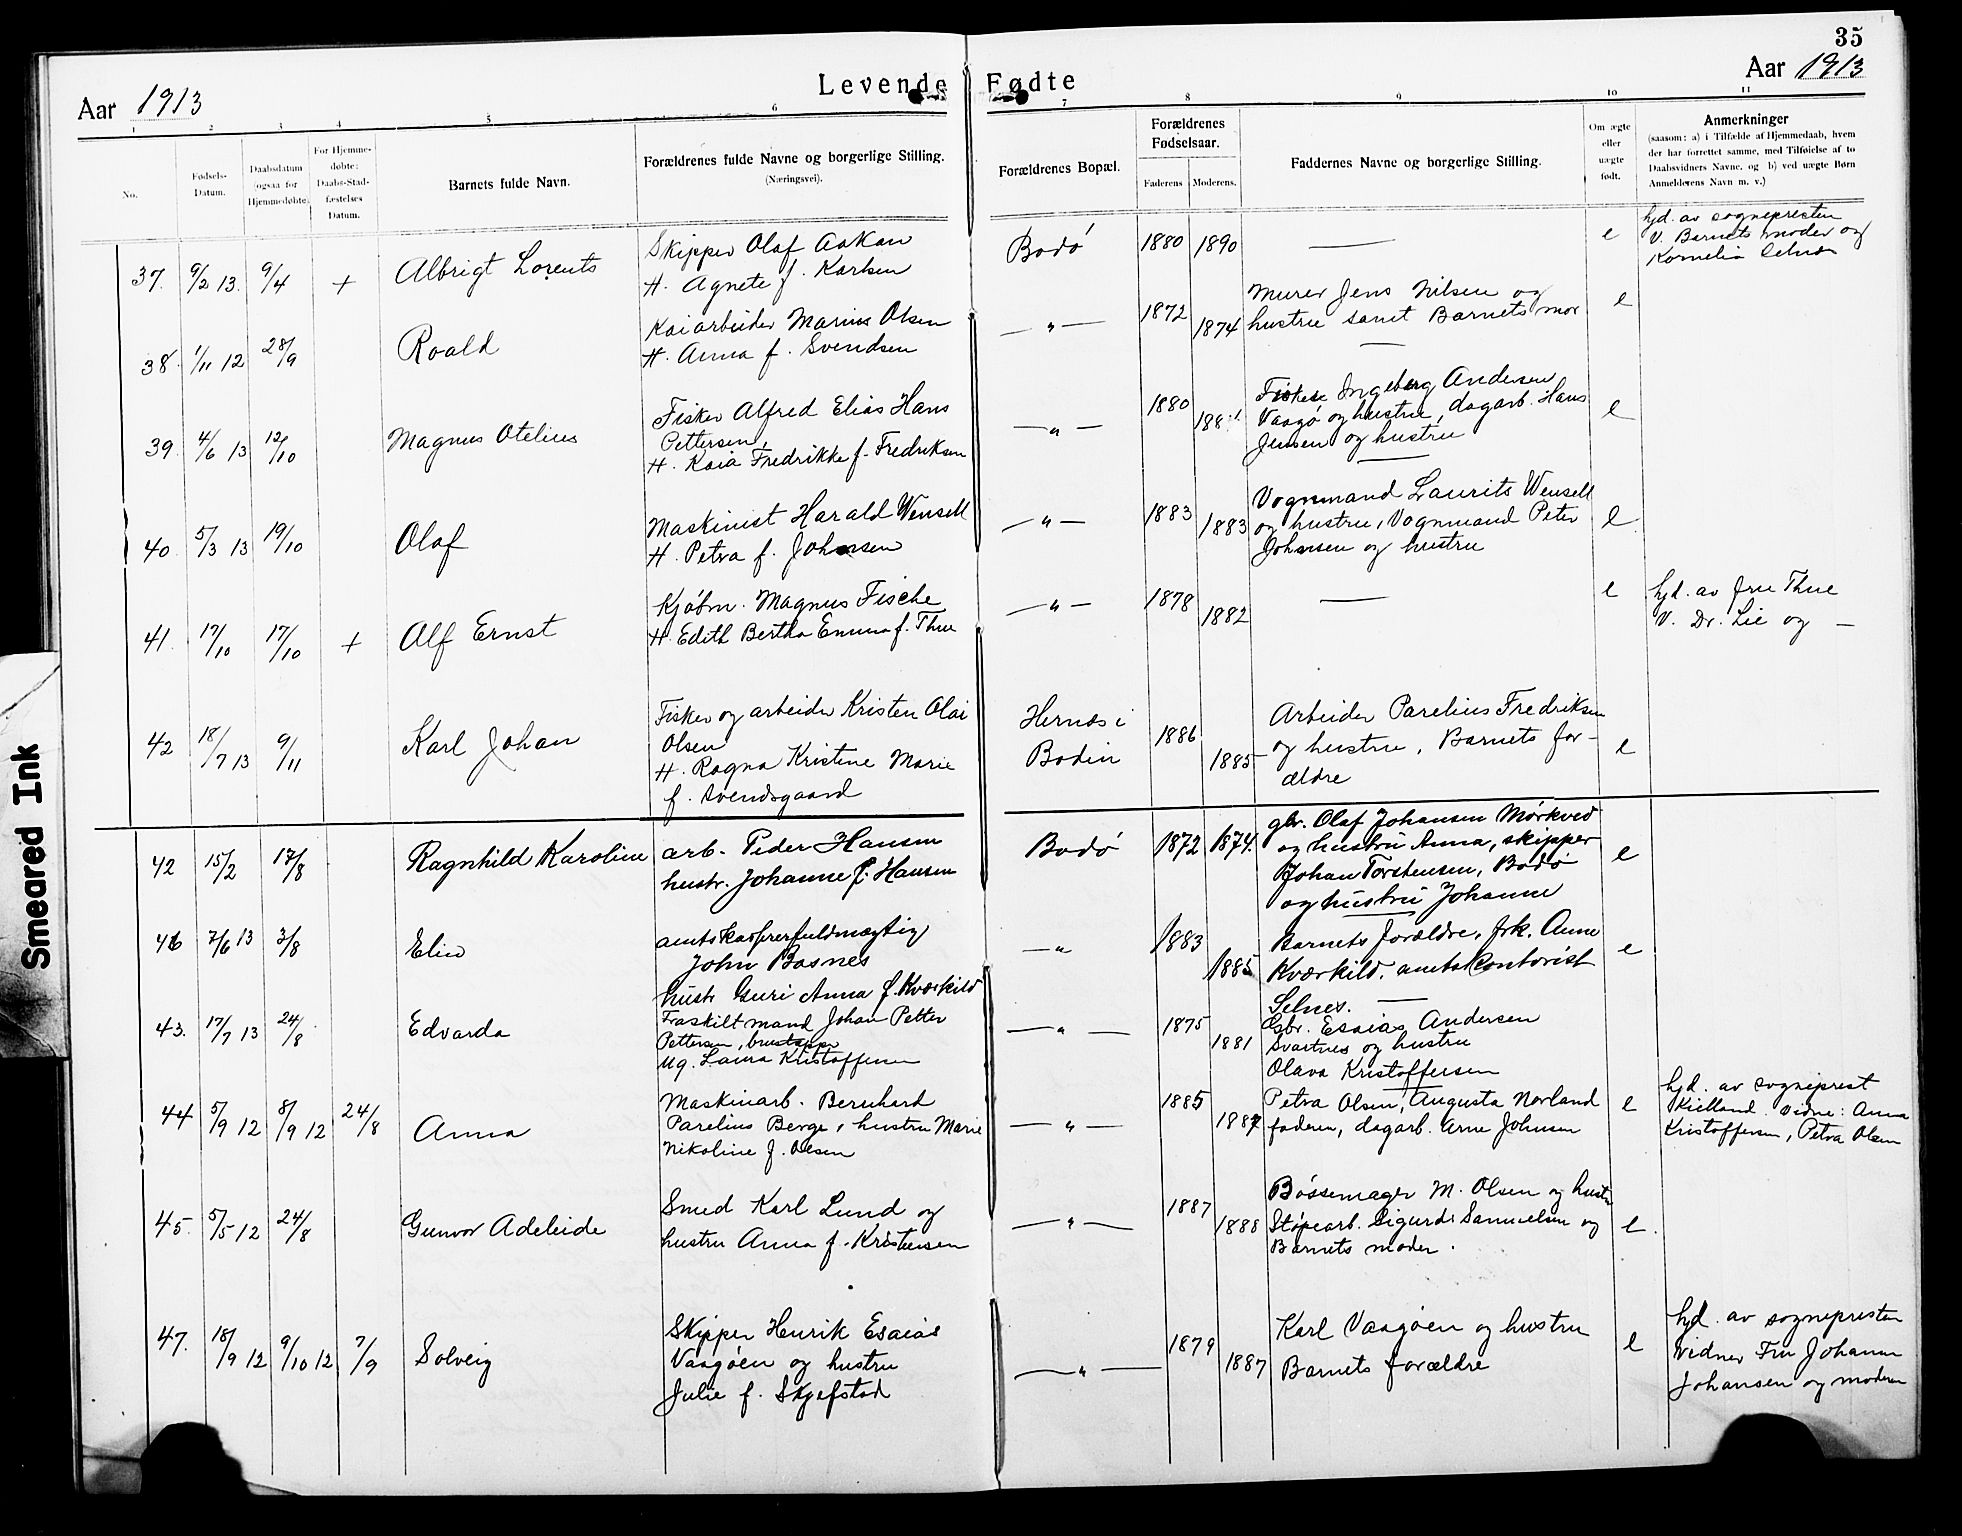 35
Levende Fødte
Aar 1913
Aar 1913
1 2 3 4 5 6 7 8 9 10 11
No.
Fødsels-
Datum.
Daabsdatum
(ogsaa for
Hjemmedøbte.
For Hjemme-
døbte:
Daabs-Stad-
fæstelses
Datum.
Barnets fulde Navn.
Forældrenes fulde Navne og borgerlige Stilling.
(Næringsvei).
Forældrenes Bopæl.
Forældrenes
Fødselsaar.
Faderens
Moderens.
Faddernes Navne og borgerlige Stilling.
Om ægte
eller
uægte
født.
Anmerkninger
(saasom: a) i Tilfælde af Hjemmedaab, hvem
der har forrettet samme, med Tilføielse af to
Daabsvidners Navne, og b) ved uægte Børn
Anmelderens Navn m. v.)
37. 9/2 13. 9/4 + Albrigt Lorents
Skipper Olaf Aakan
H. Agnete f. Karlsen
Bodø 1880 1890 — e
hjd. av sognepresten
V. Barnets moder og
Kornelia Selnæs
38. 1/11 12 28/9 Roald
Kaiarbeider Marius Olsen
H. Anna f. Svendsen
— " — 1872 1874
Murer Jens Nilsen og
hustru samt Barnets mor
e
39. 4/6 13 12/10 Magnus Otelius
Fisker Alfred Elias Hans
Pettersen
H. Kaia Fredrikke f. Fredriksen
— " — 1880 1881
Fisker Ingeberg Andersen
Vaagø og hustru, dagarb. Hans
Jensen og hustru
e
40. 5/3 13 19/10 Olaf
Maskinist Harald Wensell
H. Petra f. Johnsen
— " — 1883 1883
Vognmand Laurits Wensell
og hustru, Vognmand Peter
Johnsen og hustru
e
41. 17/10 17/10 + Alf Ernst
Kjøbm. Magnus Fische
H. Edith Bertha Emma f. Thue
— " — 1878 1882 — e
hjd. av fru Thue
V. Dr. Lie og —
42 18/7 13 9/11 Karl Johan
Fisker og arbeider Kristen Olai
Olsen
H. Ragna Kristine Marie
f. Svendsgaard
Hernæs i
Bodin
1886 1885
Arbeider Parelius Fredriksen
og hustru, Barnets for-
ældre
e
42 15/2 17/8 Ragnhild Karoline
arb. Peder Hansen
hustr. Johanne f. Hansen
Bodø 1872 1874.
gbr. Olaf Johansen Mørkved
og hustru Anna, skipper
Johan Torstensen, Bodø
og hustru Johanne
e
46 7/6 13 3/8 Elin
amtskasserfuldmægtig
John Bosnes
hustr Guri Anna f. Kværkild
— " 1883 1885
Barnets forældre, frk. Anne
Kværkild. amtskontorist
Selnes.
e
43. 17/7 13 24/8 Edvarda
Fraskilt mand Johan Petter
Pettersen,
Ug. Laura Kristoffersen
— " — 1875 1881
Gbr. Esaias Andersen
Svartnes og hustru
Olava Kristoffersen
44 5/9 12 8/9 12 24/8 Anna
Maskinarb. Bernhard
Parelius Berge, hustru Marie
Nikoline f. Olsen
— " — 1885 1887
Petra Olsen, Augusta Norland
faderen, dagarb. Arne Johnsen
e
hjd. av sogneprest
Kielland. Vidne: Anna
Kristoffersen, Petra Olsen
45. 5/5 12 24/8 Gunvor Adeleide
Smed Karl Lund og
hustru Anna f. Kristensen
— " — 1887 1888
Bøssemager M. Olsen og hustru
Støpearb. Sigurd Samuelsen og
Barnets moder.
e.
47. 18/9 12 9/10 12 7/9 Solveig
Skipper Henrik Esaias
Vaagøen og hustru
Julie f. Skjefstad
— " — 1879 1887
Karl Vaagøen og hustru
Barnets forældre
e
hjd. av sognepresten
Vidner Fru Johanna
Johansen og moderen
Smeared Ink